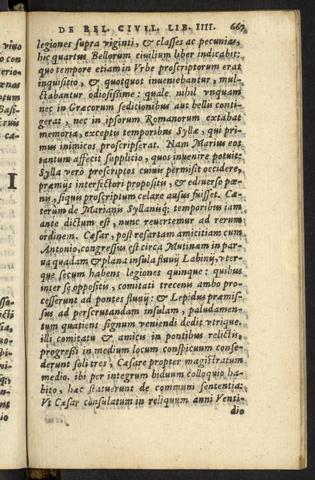 DE BEL. CIVIL. LIB. IIII. 667
legiones supra viginti, & classes ac pecunias,
hic quartus Bellorum civilium liber indicabit:
quo tempore etiam in Vrbe proscriptorum erat
inquisitio, & quotquot inueniebantur, mul-
ctabantur odiosissime: quale nihil vnquam
nec in Græcorum seditionibus aut belli conti-
gerat, nec in ipsorum Romanorum extabat
memoria, exceptis temporibus Syllæ, qui pri-
mus inimicos proscripserat. Nam Marius eos
tantum affecit supplicio, quos inuenire potuit:
Sylla verò proscriptos cuiuis permisit occidere,
præmijs interfectori propositis, & ediuerso pœ-
nis, siquis proscriptum celare ausus fuisset. Cæ-
terùm de Marianis Syllanisq; temporibus iam
ante dictum est, nunc reuertemur ad rerum
ordinem. Cæsar, post resartam amicitiam cum
Antonio, congressus est circa Mutinam in par-
ua quadam & plana insula fluuij Labinij, vter-
que secum habens legiones quinque: quibus
inter se oppositis, comitati trecenis ambo pro-
cesserunt ad pontes fluuij: & Lepidus præmis-
sus ad perscrutandam insulam, paludamen-
tum quatiens signum veniendi dedit vtrique.
illi comitatu & amicis in pontibus relictis,
progressi in medium locum conspicuum conse-
derunt soli tres, Cæsare propter magistratum
medio. ibi per integrum biduum colloquio ha-
bito, hæc statuerunt de communi sententia:
Vt Cæsar consulatum in reliquum anni Venti-
dio
viuo
I